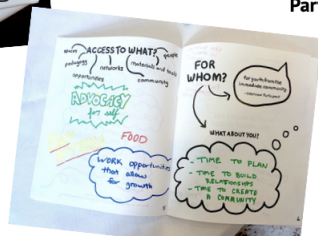 Par
ACCESS TO WHAT?
space
people
pedagogy
networks
materials and tools
opportunities
community
ADVOCACY
for self
FOOD
WORK opportunities
that allow
for growth
FOR
WHOM?
for youth from the
immediate community
WHAT ABOUT YOU?
- TIME TO PLAN
- TIME TO BUILD
RELATIONSHIPS
- TIME TO CREATE
A COMMUNITY